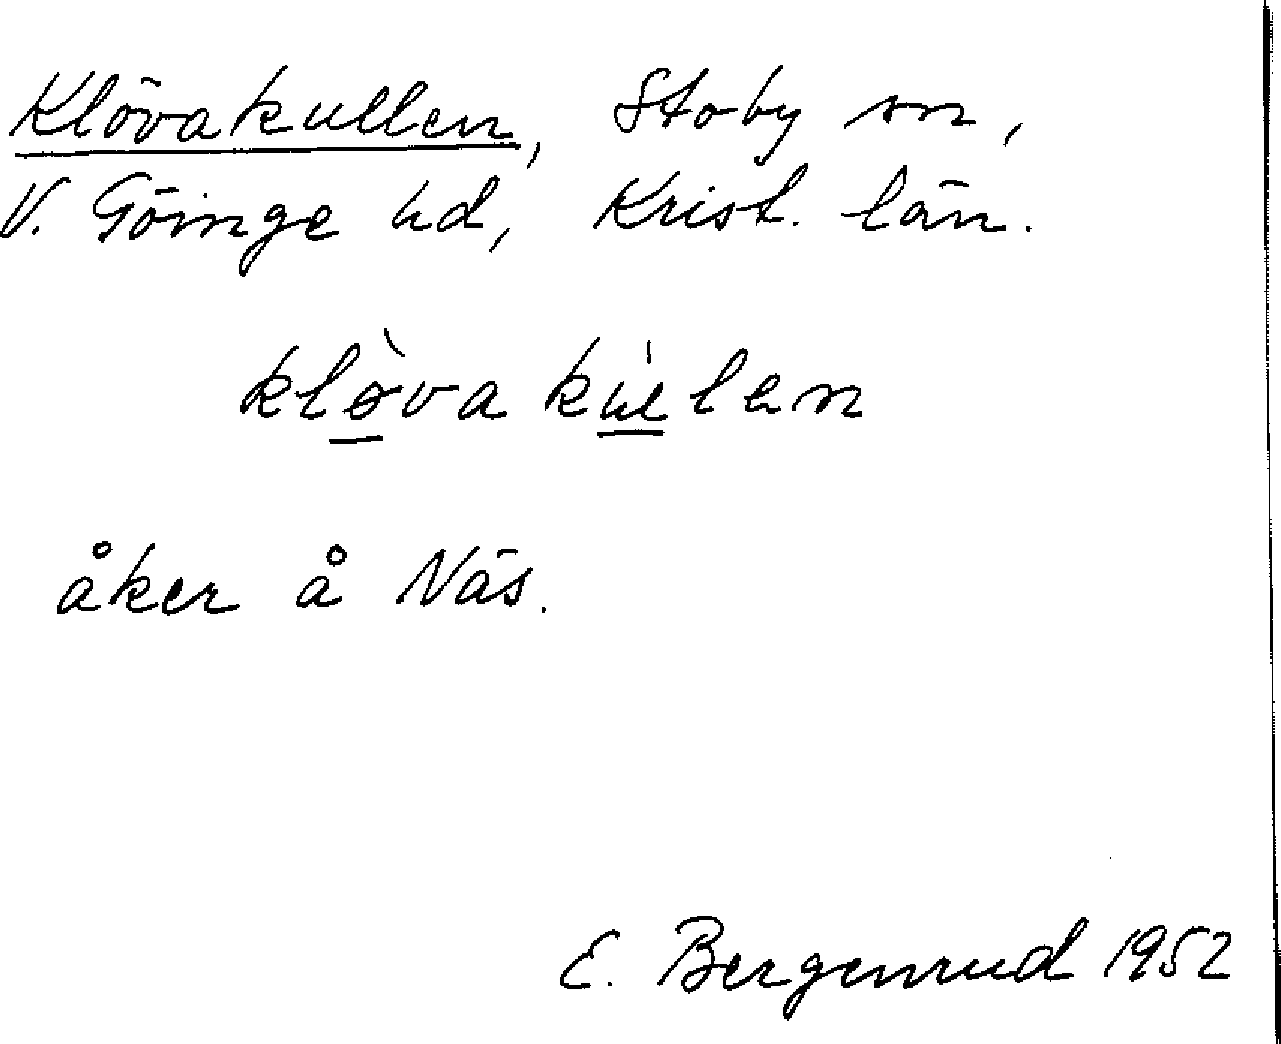 Klövakullen, Stoby sn,
V. Göinge hd, Krist. län.
kløvakulen
åker å Näs.
E. Bergenrud 1952